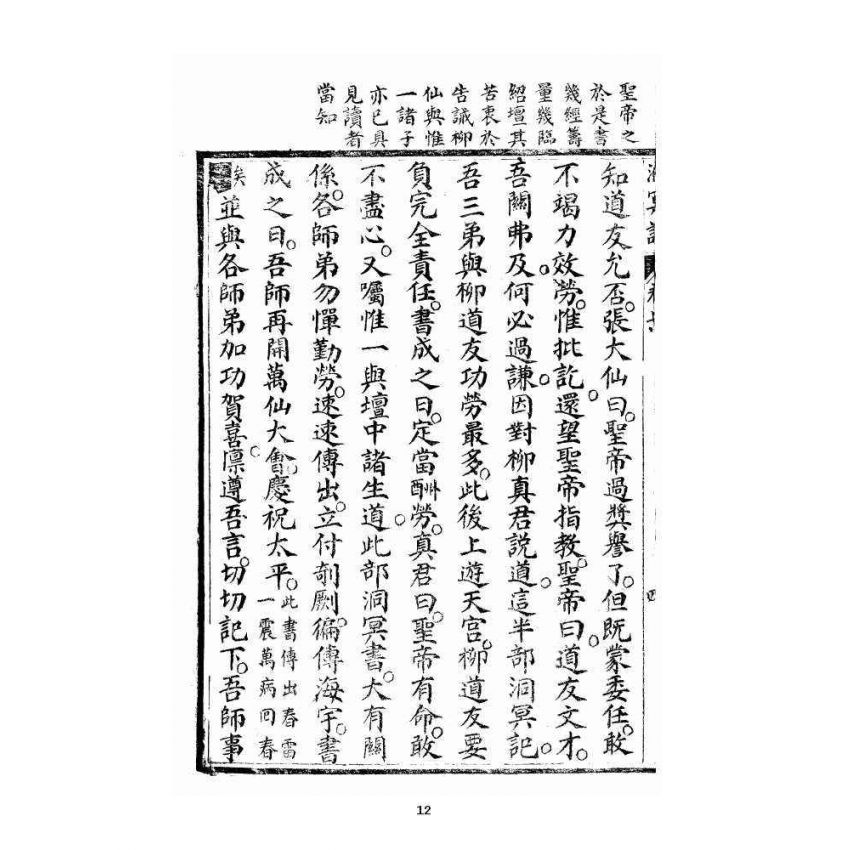 聖帝之
於是書
幾經籌
量幾臨
紹壇其
苦衷於
告誡柳
仙與惟
一諸子
亦已具
見讀者
當知
知道友允否。張大仙曰。聖帝過獎譽了。但既蒙委任。敢
不竭力效勞。惟批訖。還望聖帝指教。聖帝曰。道友文才。
吾關弗及。何必過謙。因對柳真君說道。這半部洞冥記。
吾三弟與柳道友功勞最多。此後上遊天宮。柳道友要
負完全責任。書成之日。定當酬勞。真君曰。聖帝有命。敢
不盡心。又囑惟一與壇中諸生道。此部洞冥書。大有關
係。各師弟勿憚勤勞。速速傳出。立付剞劂。徧傳海宇。書
成之日。吾師再開萬仙大會。慶祝太平。此書傳出春雷
一震萬病回春
矣並與各師弟加功賀喜。凛遵吾言。切切記下。吾師事
12